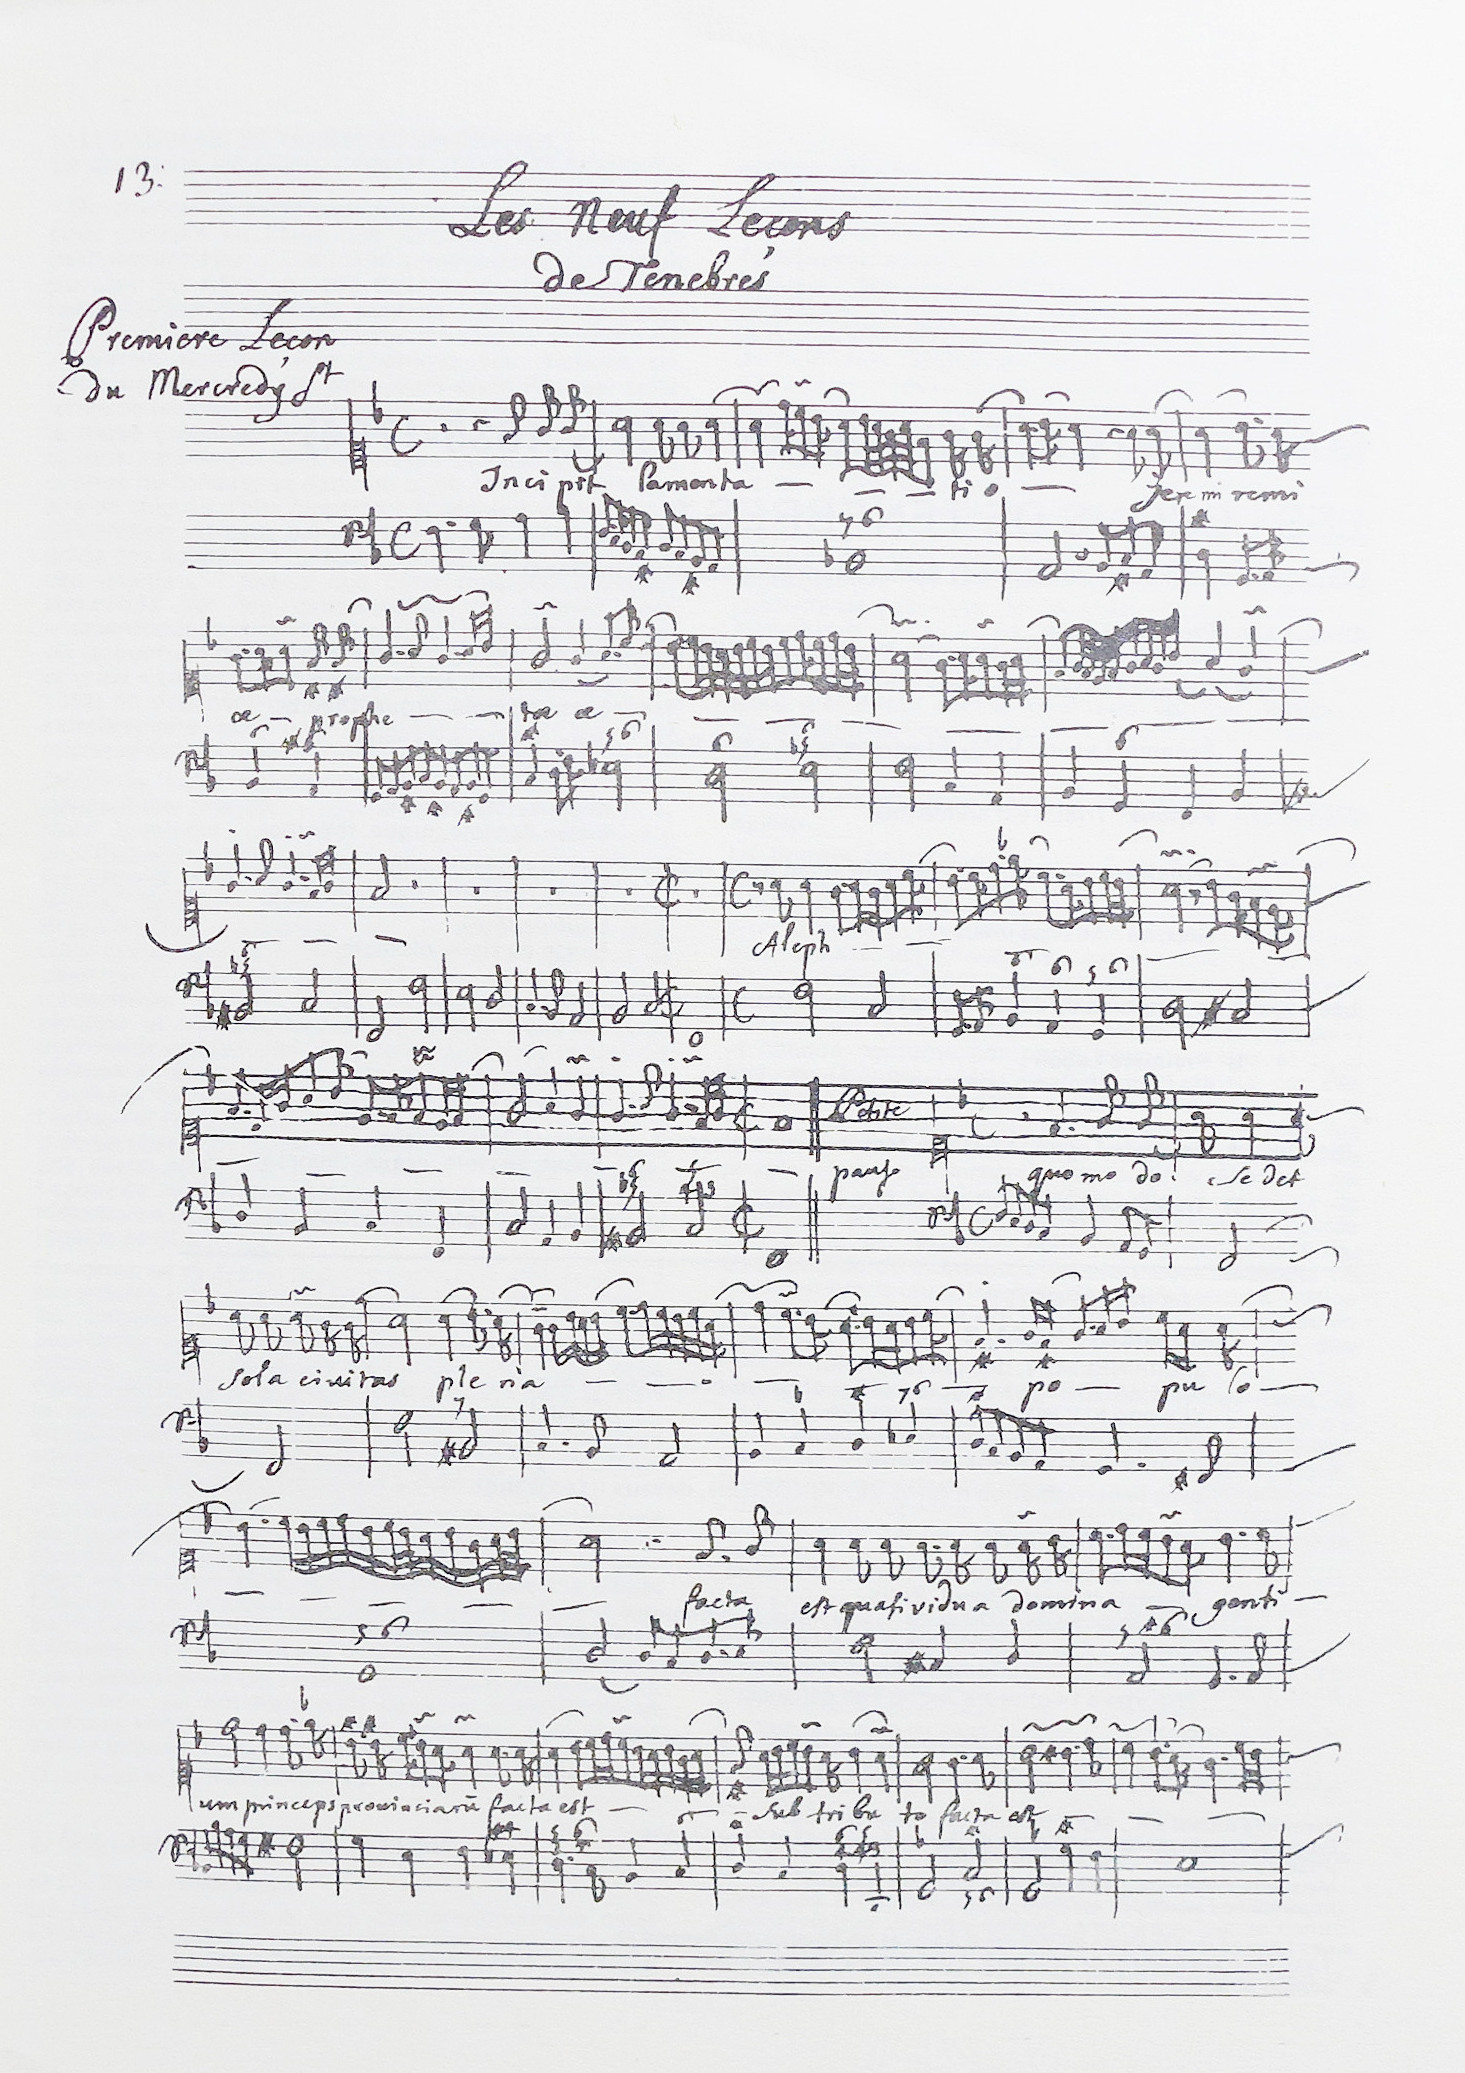 13:
Les Neuf Leçons
de Tenebres
Premiere Leçon
du Mercredy St
Incipit lamenta — — — ti o — Jere mi remi
æ — prophe — — tæ æ —
Aleph
Petite
pause quomo do sedet
sola civitas ple na — — — — po — pu lo —
facta est quasi vidu a domina — genti —
um princeps provinciarū facta est — sub tribu to facta est — —